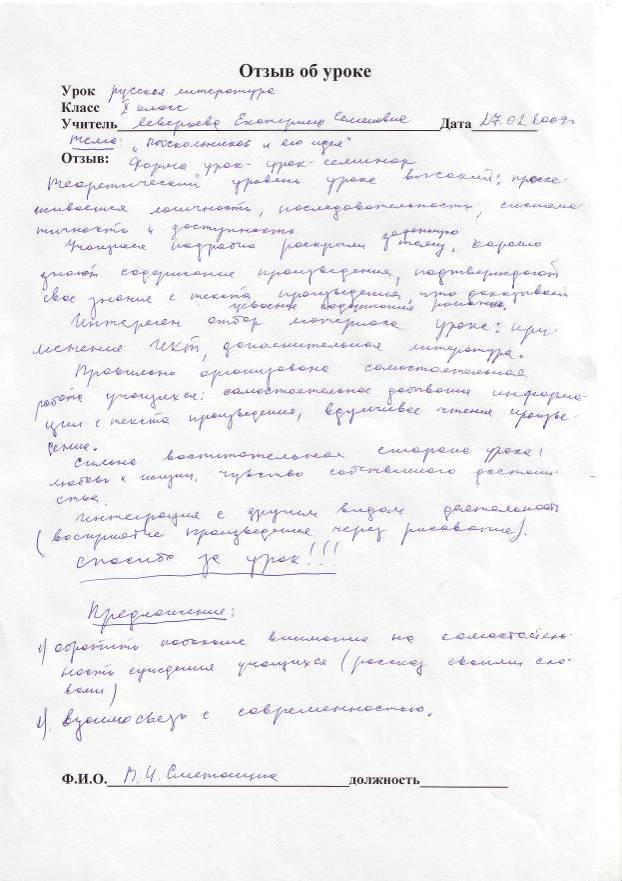 Отзыв об уроке
Урок русская литература
Класс X класс
Учитель Екатерина Семеновна Дата 27.02.2009г
Тема: „Раскольников и его идея"
Отзыв: Форма урок- урок-семинар
Теоретический уровень урока высокий: просле-
живается логичность, последовательность, система
тичность и доступность
Учащиеся подробно раскрыли заданную тему, хорошо
знают содержание произведения, подтверждают
свое знание с текста произведения, что доказывает
усвоение содержания романа.
Интересен отбор материала урока: при
менение ИКТ, дополнительная литература.
Правильно организована самостоятельная
работа учащихся: самостоятельное добывание информа-
ции с текста произведения, вдумчивое чтение произве-
дения.
Сильна воспитательная сторона урока:
любовь к жизни, чувство собственного достоин-
ства.
Интеграция с другим видом деятельност
(восприятие произведения через рисование).
Спасибо за урок!!!
Предложение:
1) обратить побольше внимания на самостоятель-
ность суждения учащихся (рассказ своими сло-
вами)
2). взаимосвязь с современностью.
Ф.И.О. В.И. Сметанина должность